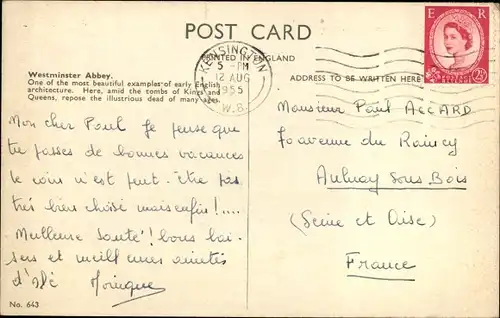 POST CARD
PRINTED IN ENGLAND
Westminster Abbey.
One of the most beautiful examples of early English
architecture. Here, amid the tombs of Kings and
Queens, repose the illustrious dead of many ages.
ADDRESS TO BE WRITTEN HERE
KENSINGTON
5 - PM
12 AUG
1955
W.8.
E R
POSTAGE REVENUE
2½
Mon cher Paul Je pense que
tu passes de bonnes vacances
le coin n'est peut-être pas
très bien choisi mais enfin!....
Meilleure santé! bons bai-
sers et meilleures amitiés
Monique
No. 643
Monsieur Paul ACCARD
avenue du Raincy
Aulnay sous Bois
(Seine et Oise)
France